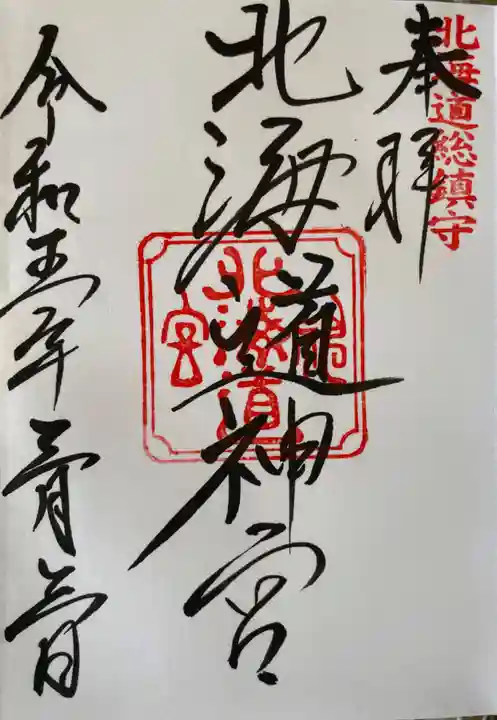 北海道総鎮守
奉拝
北海道神宮
北海道神宮
令和五年三月三日